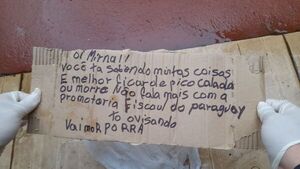 Oi Mirna!!
Você ta sabendo muitas coisas
E melhor ficar de pico calada
ou morre Não fala mais com a
promotoria Fiscau do paraguay
to avisando
Vai morrer PORRA